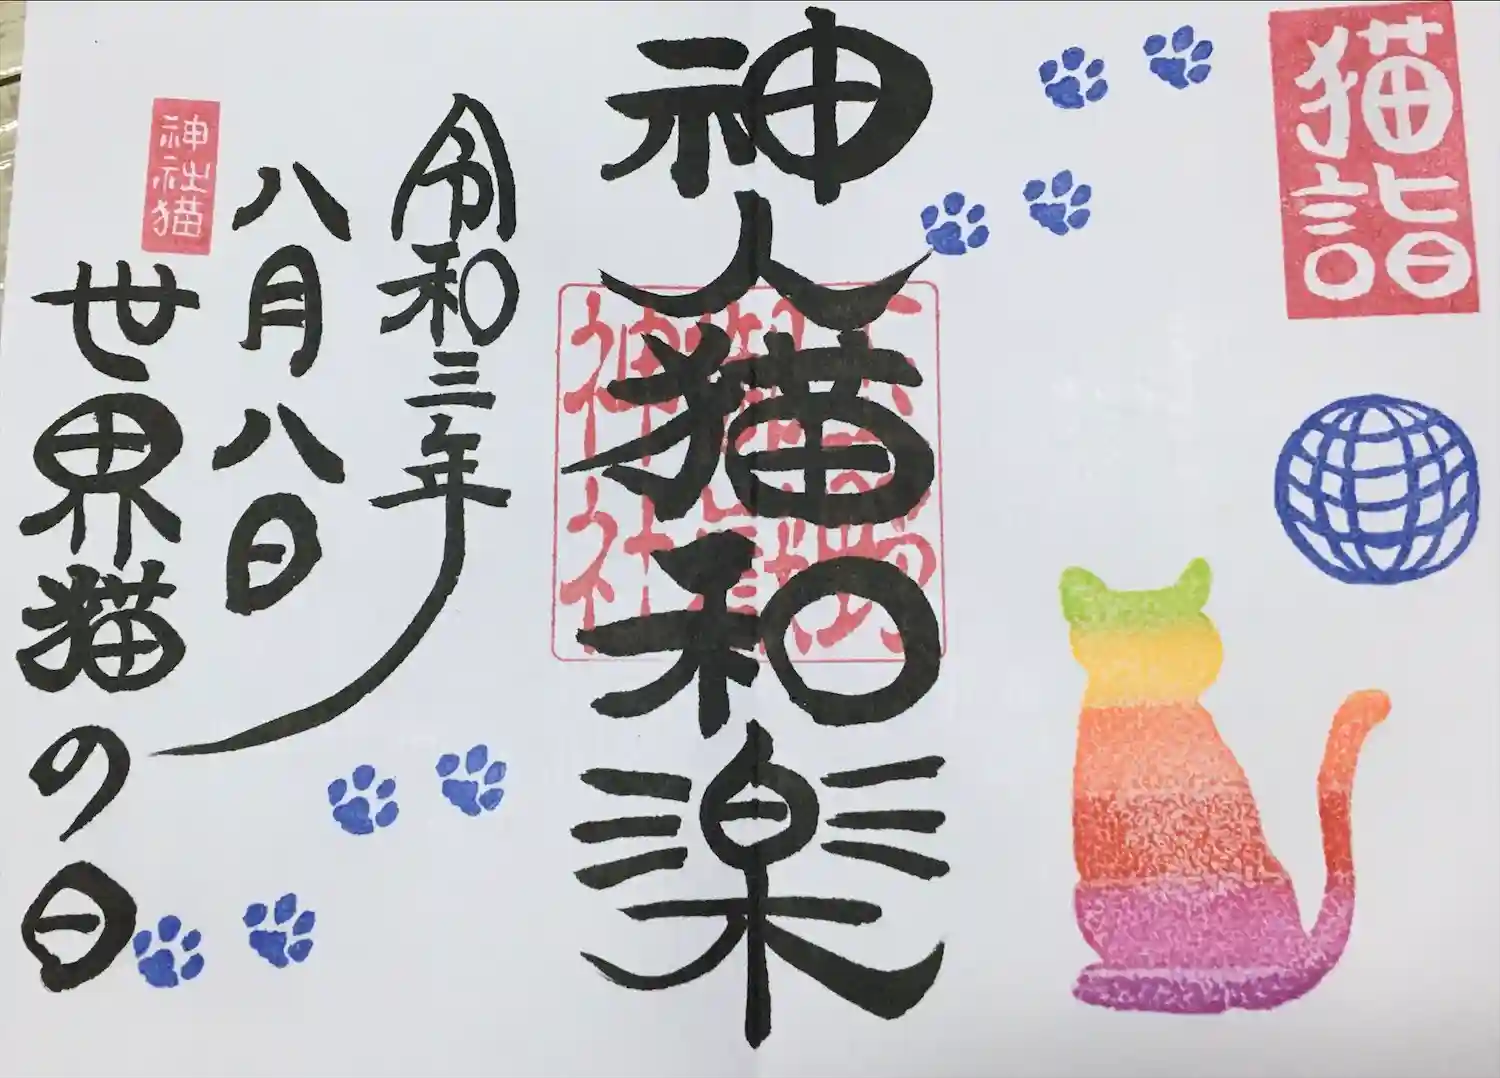 猫詣
神人猫和楽
神社
令和三年
八月八日
神社猫
世界猫の日